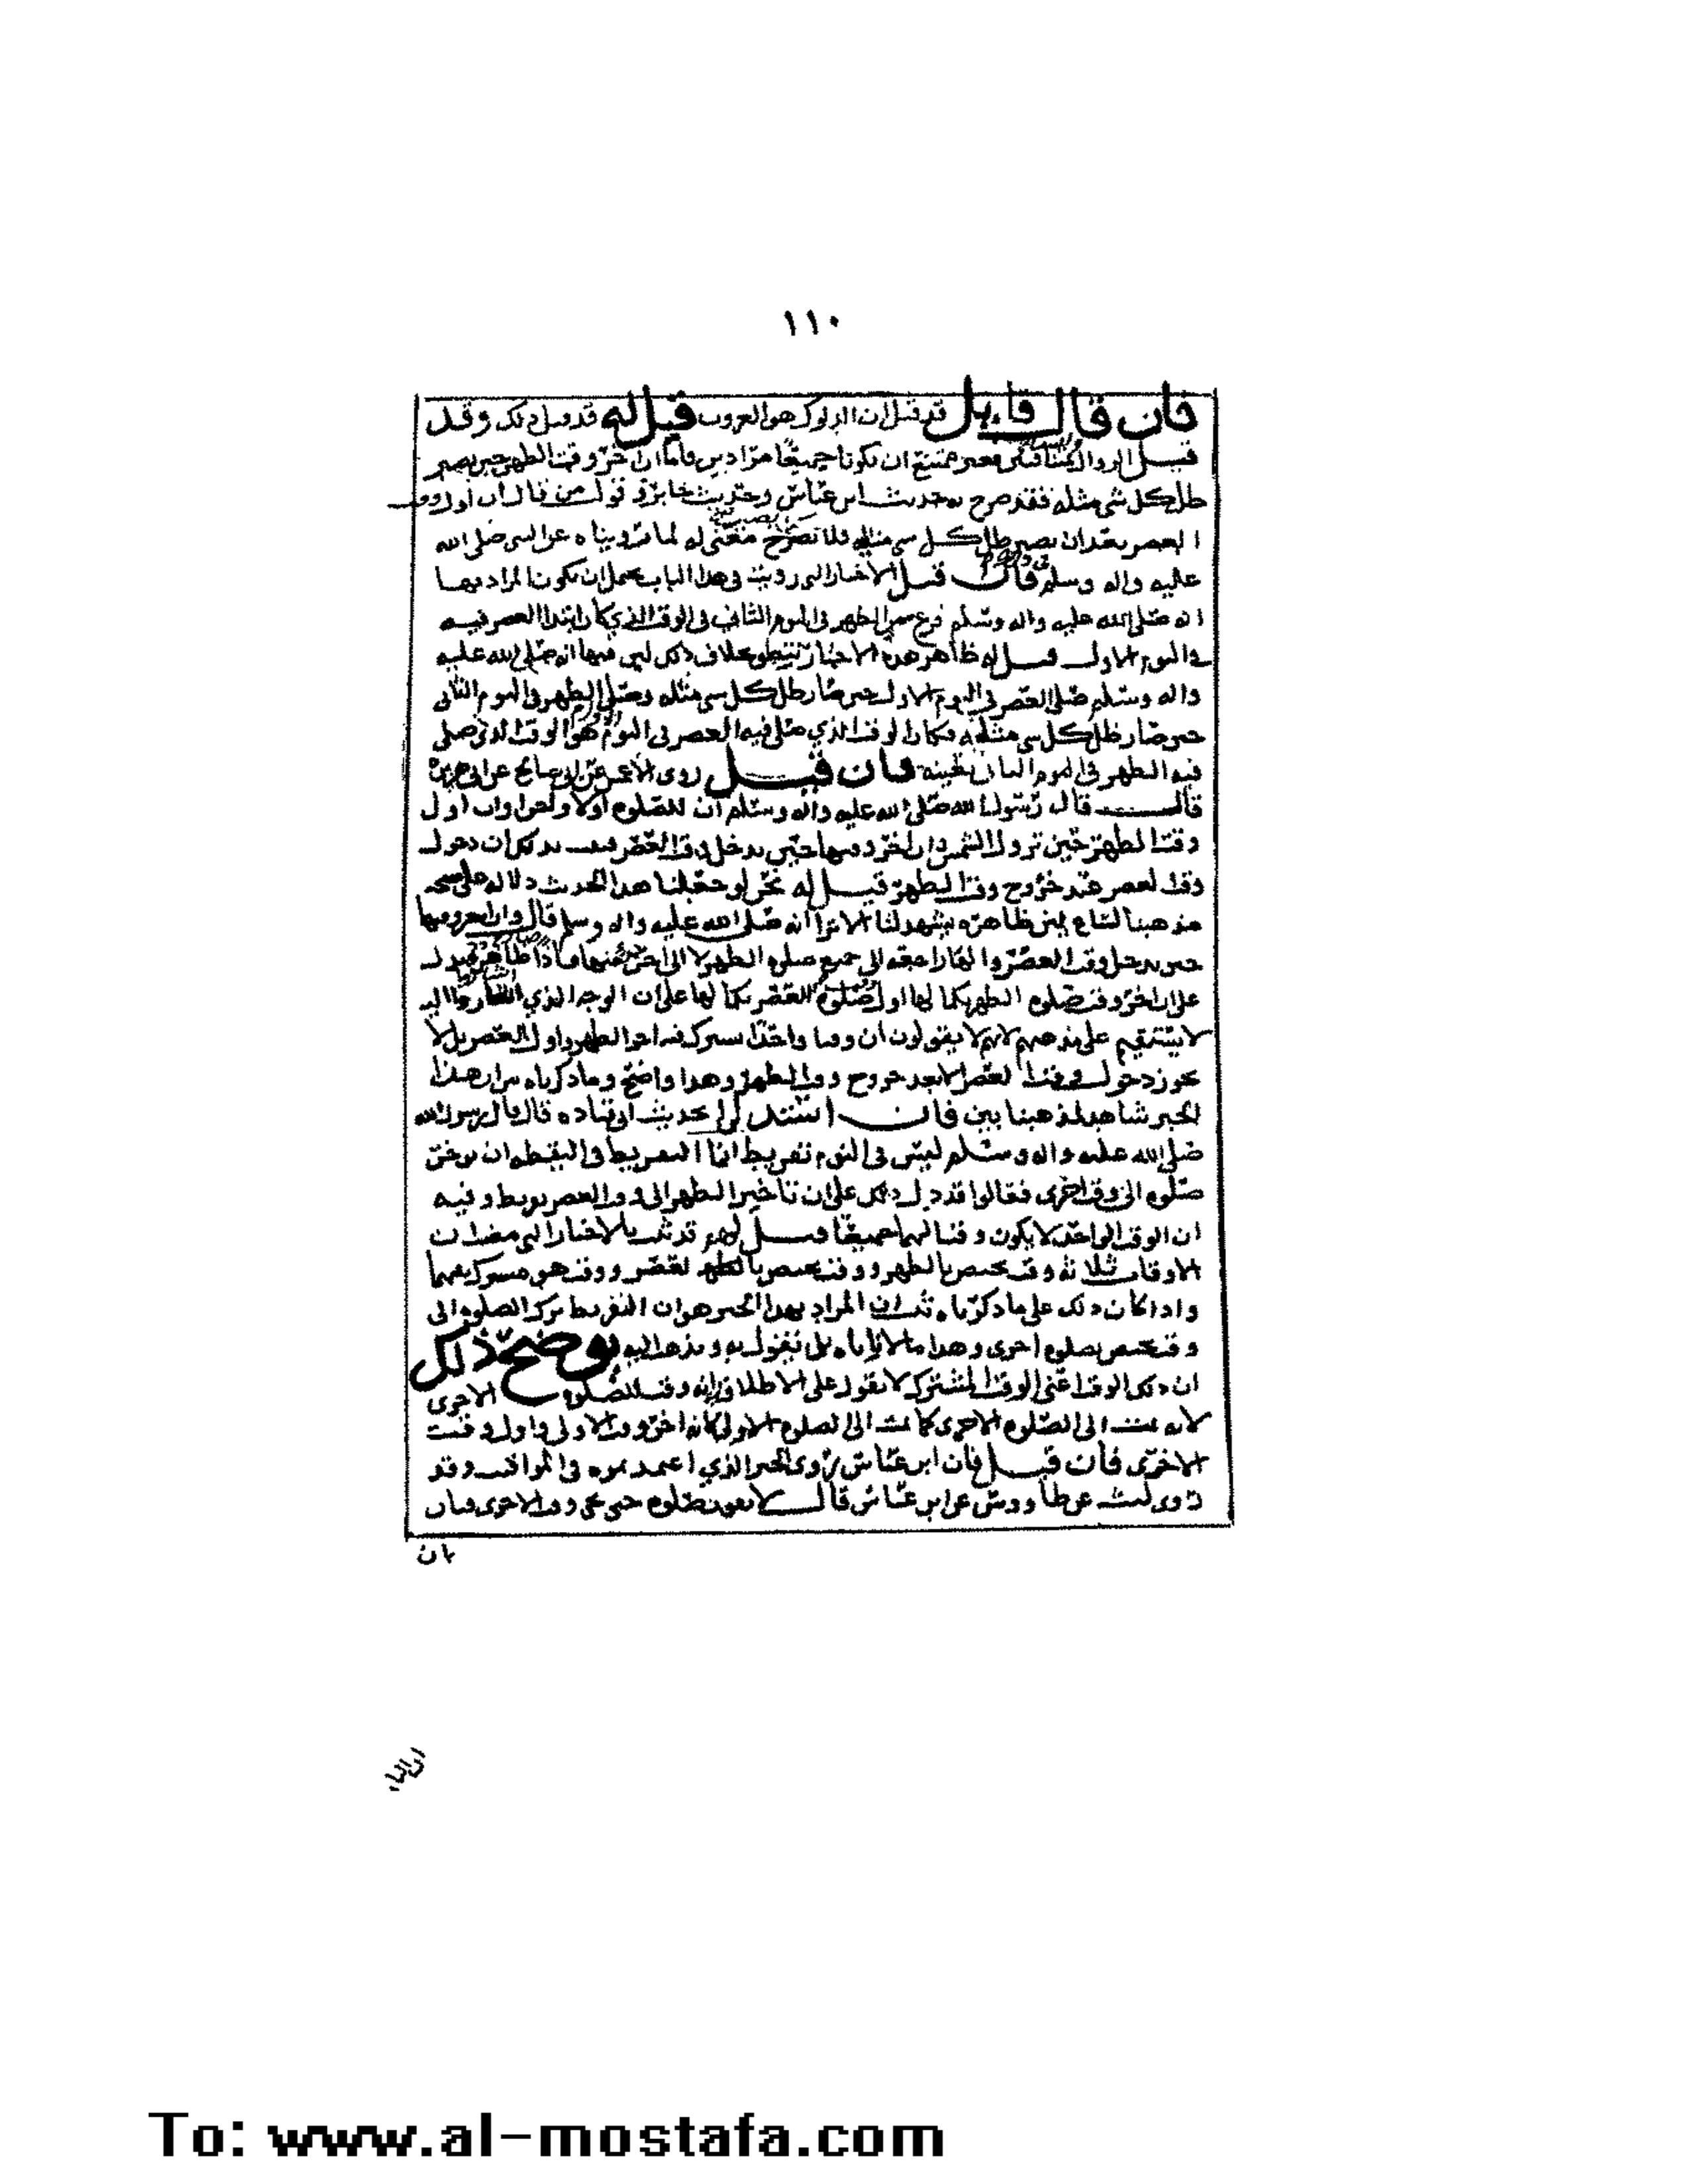 ١١٠
فان قال قايل قد قيل ان الدلوك هو الغروب قيل له قد قيل ذلك وقد
قيل الزوال فغير ممتنع ان يكونا جميعا مرادين واما ان اخر وقت الظهر حين يصير
ظل كل شي مثله فقد صرح به حديث ابن عباس وحديث جابر و قول من قال ان اول وقت
العصر بعد ان يصير ظل كل شي مثليه فلا معنى له لما رويناه عن النبي صلى الله
عليه واله وسلم فان قيل الاخبار التي رويت في هذا الباب يحتمل ان يكون المراد بها
انه صلى الله عليه واله وسلم فرغ من الظهر في اليوم الثاني في الوقت الذي كان ابتدا العصر فيه
في اليوم الاول قيل له ظاهر هذه الاخبار تنطق بخلاف ذلك لان فيها انه صلى الله عليه
واله وسلم صلى العصر في اليوم الاول حين صار ظل كل شي مثله وصلى الظهر في اليوم الثاني
حين صار ظل كل شي مثله فكان الوقت الذي صلى فيه العصر في اليوم هو الوقت الذي صلى
فيه الظهر في اليوم الثاني بعينه فان قيل روى الاعمش عن ابي صالح عن ابي هريرة
قال قال رسول الله صلى الله عليه واله وسلم ان للصلوه اولا واخرا وان اول
وقت الظهر حين تزول الشمس وان اخر وقتها حين يدخل وقت العصر بذلك ان دخول
وقت العصر عند خروج وقت الظهر قيل له نحن لو جعلنا هذا الحديث دلاله على صحه
مذهبنا لساغ لان ظاهره يشهد لنا الا ترا انه صلى الله عليه واله وسلم قال وان اخر وقتها
حين يدخل وقت العصر والها راجعه الى جميع صلوه الظهر لا الى اخر جزء منها
على ان اخر وقت صلوه الظهر بكمالها اول صلوه العصر بكمالها على ان الوجه الذي اشاروا اليه
لا يستقيم على مذهبهم لانهم لا يقولون ان وقتا واحدا يشترك فيه اخر الظهر واول العصر بل لا
يجوز دخول وقت العصر الا بعد خروج وقت الظهر وهذا واضح وما ذكرناه من ان هذا
الخبر شاهد لمذهبنا بين فان استدل بحديث ابي قتاده قال قال رسول الله
صلى الله عليه واله وسلم ليس في النوم تفريط انما التفريط في اليقظه ان يوخر
صلوه الى وقت اخرى فقالوا قد دل ذلك على ان تاخير الظهر الى وقت العصر تفريط وفيه
ان الوقت الواحد لا يكون وقتا لهما جميعا قيل لهم قد ثبت بالاخبار التي مضت ان
الاوقات ثلاثه وقت يختص بالظهر ووقت يختص بالعصر ووقت هو مشترك بينهما
واذا كان ذلك على ما ذكرناه ثبت ان المراد بهذا الخبر هو ان التفريط ترك الصلوه الى
وقت يختص بصلوه اخرى وهذا ما لا ناباه بل نقول به ونذهب اليه يوضح ذلك
ان ذلك الوقت اعني الوقت المشترك لا يقول على الاطلاق انه وقت للصلوه الاخرى
لانه ينسب الى الصلوه الاخرى كما ينسب الى الصلوه الاولى كانه اخر وقت الاولى واول وقت
الاخرى فان قيل فان ابن عباس روى الخبر الذي اعتمدتموه في المواقيت وقد
روى ليث عن طاووس عن ابن عباس قال لا يفوت صلوه حتى يجي وقت الاخرى فان
بان
To: www.al-mostafa.com